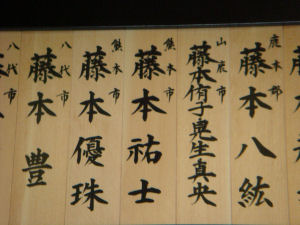 鹿本郡
藤本八紘
山鹿市
藤本侑子
生真央
熊本市
藤本祐士
熊本市
藤本優珠
八代市
藤本豊
八代市